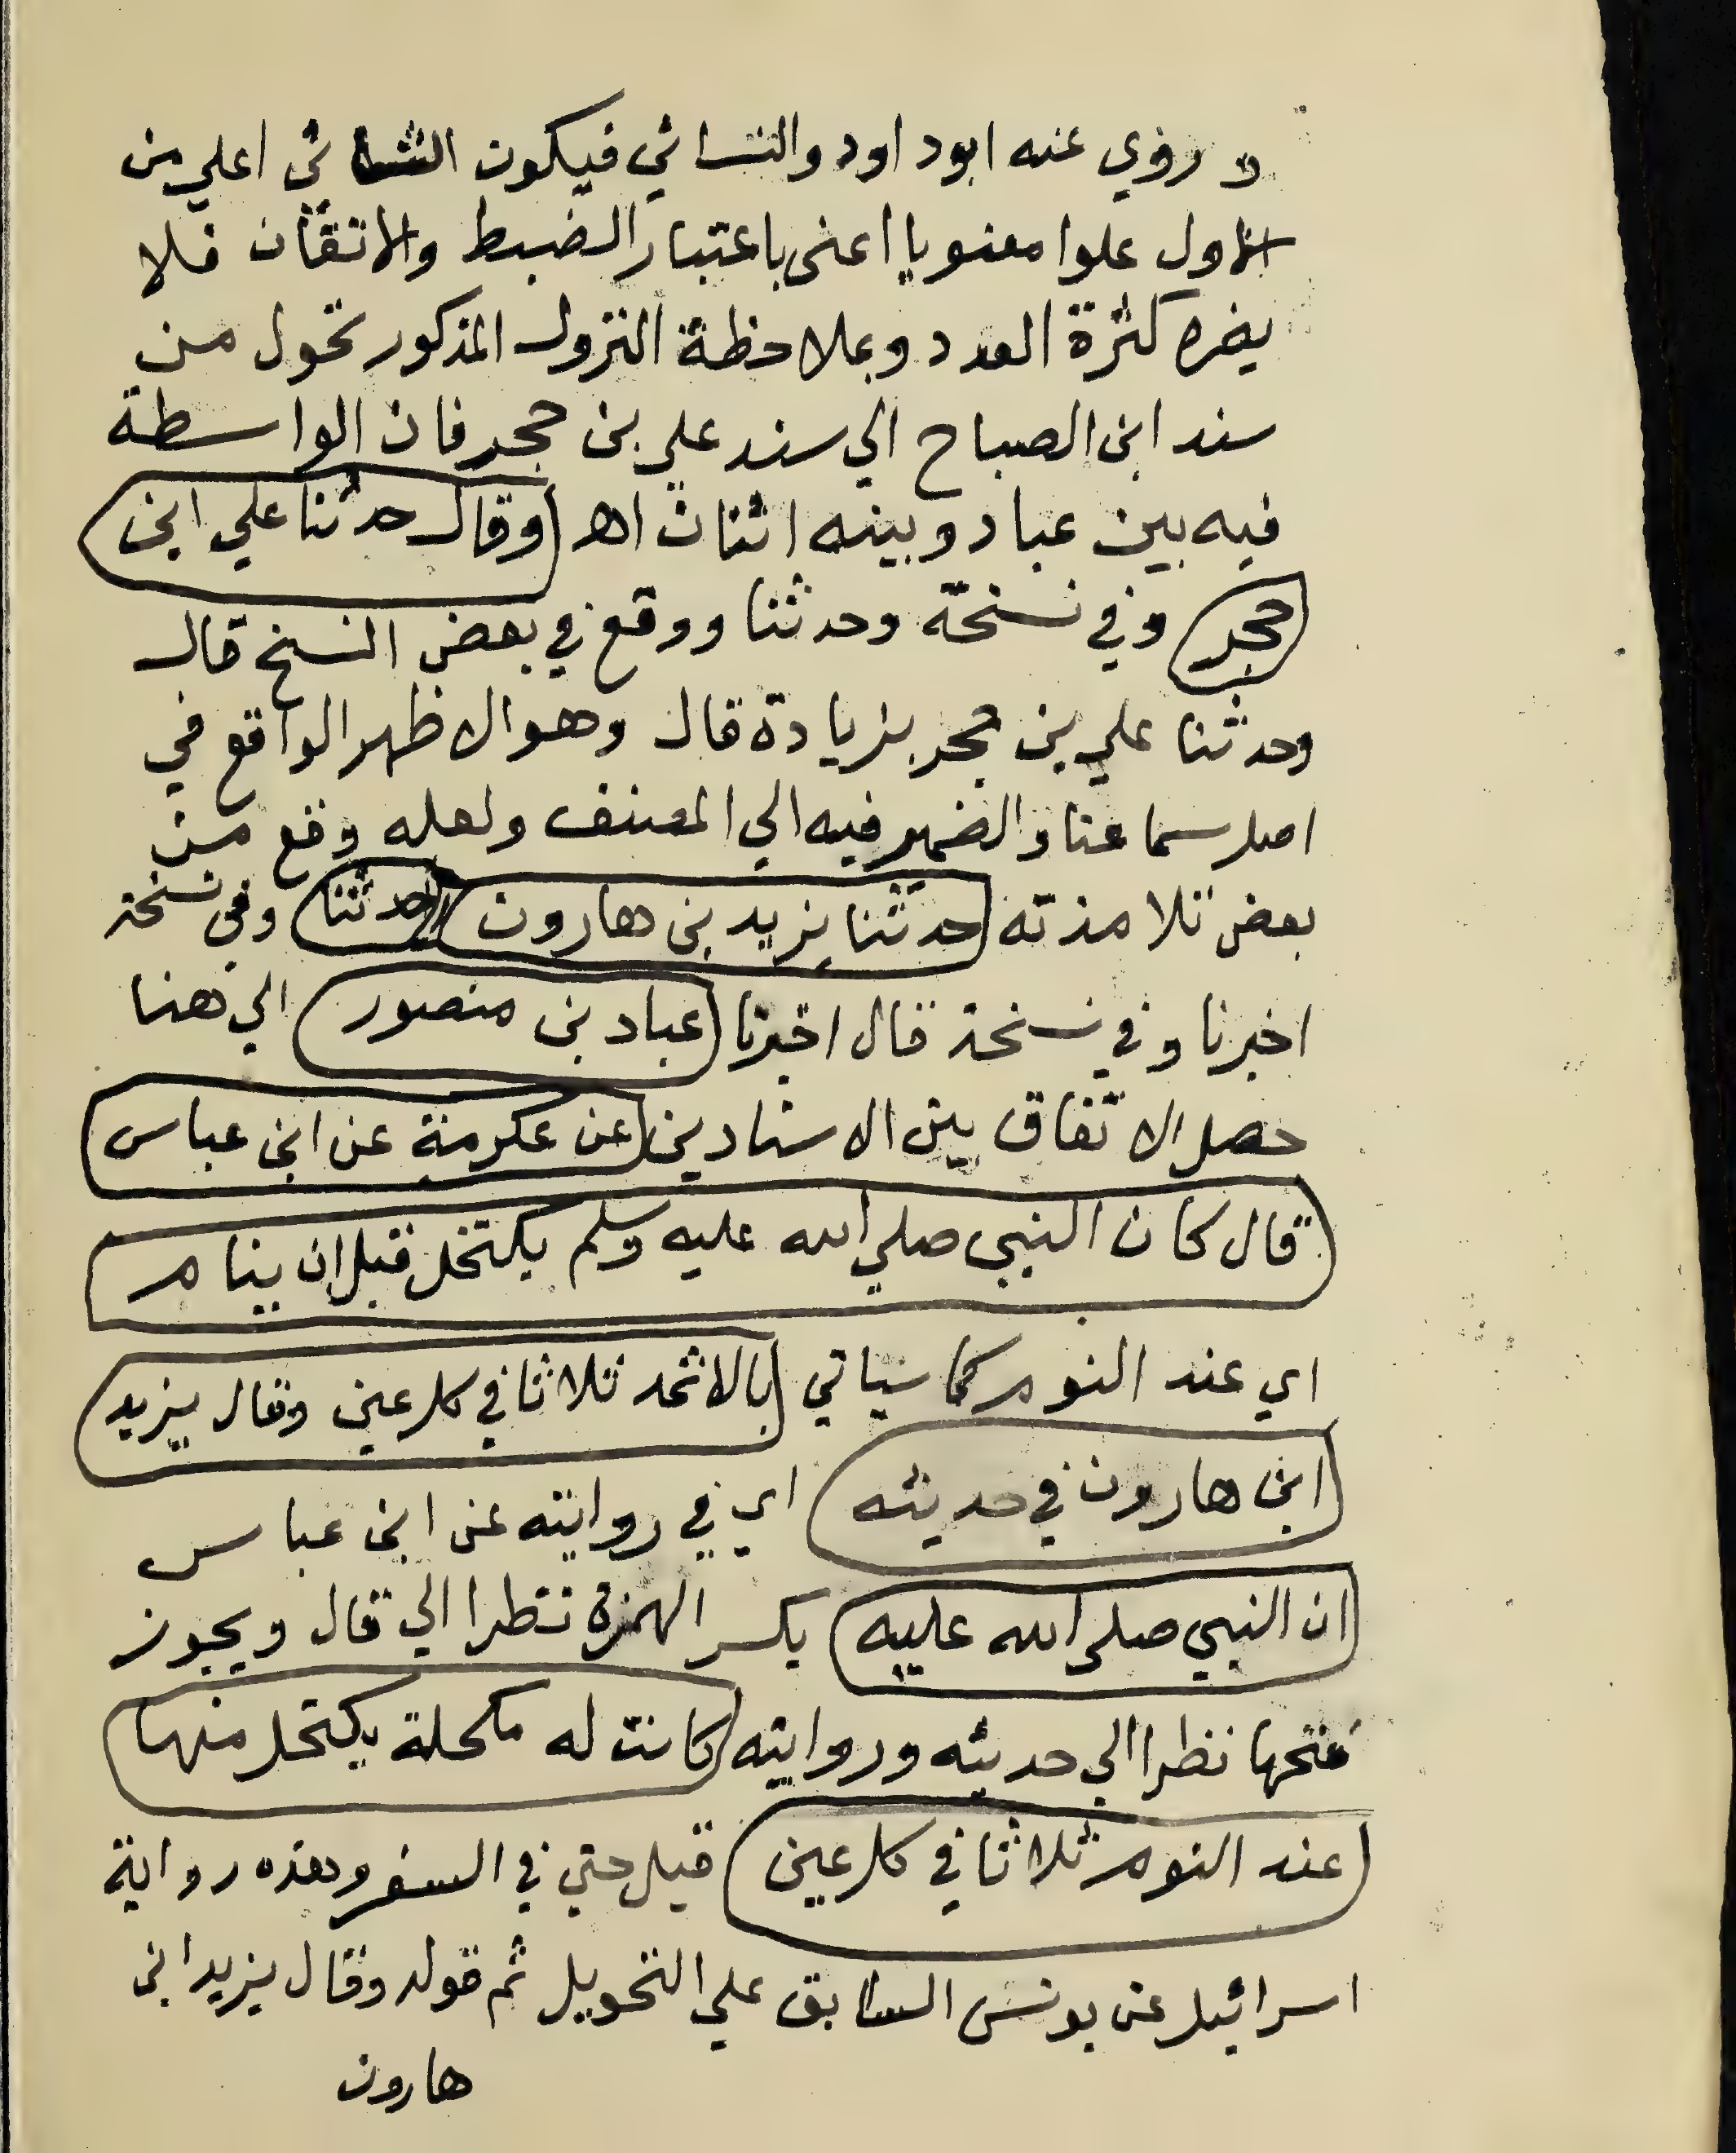 وروي عنه ابوداود والنسائي فيكون الثاني اعلي من
الاول علوا معنويا اعني باعتبار الضبط والاتقان فلا
يضره كثرة العدد وبملاحظة النزول المذكور تحول من
سند ابن الصباح الي سند علي بن حجر فان الواسطة
فيه بين عباد وبينه اثنان اهـ (وقال حدثنا علي ابن
حجر) وفي نسخة وحدثنا ووقع في بعض النسخ قال
وحدثنا علي بن حجر بزيادة قال وهو الاظهر الواقع في
اصل سماعنا والضمير فيه الي المصنف ولعله وقع من
بعض تلامذته (حدثنا يزيد بن هارون) (حدثنا) وفي نسخة
اخبرنا وفي نسخة قال اخبرنا (عباد بن منصور) الي هنا
حصل الاتفاق بين الاسنادين (عن عكرمة عن ابن عباس
قال كان النبي صلي الله عليه وسلم يكتحل قبل ان ينام)
اي عند النوم كما سياتي (بالاثمد ثلاثا في كل عين وقال يزيد
ابن هارون في حديثه) اي في روايته عن ابن عباس
(ان النبي صلي الله عليه) بكسر الهمزة نظرا الي قال ويجوز
فتحها نظرا الي حديثه وروايته (كانت له مكحلة يكتحل منها
عند النوم ثلاثا في كل عين) قيل حتي في السفر وهذه رواية
اسرائيل عن يونس السابق علي التحويل ثم قوله وقال يزيد ابن
هارون